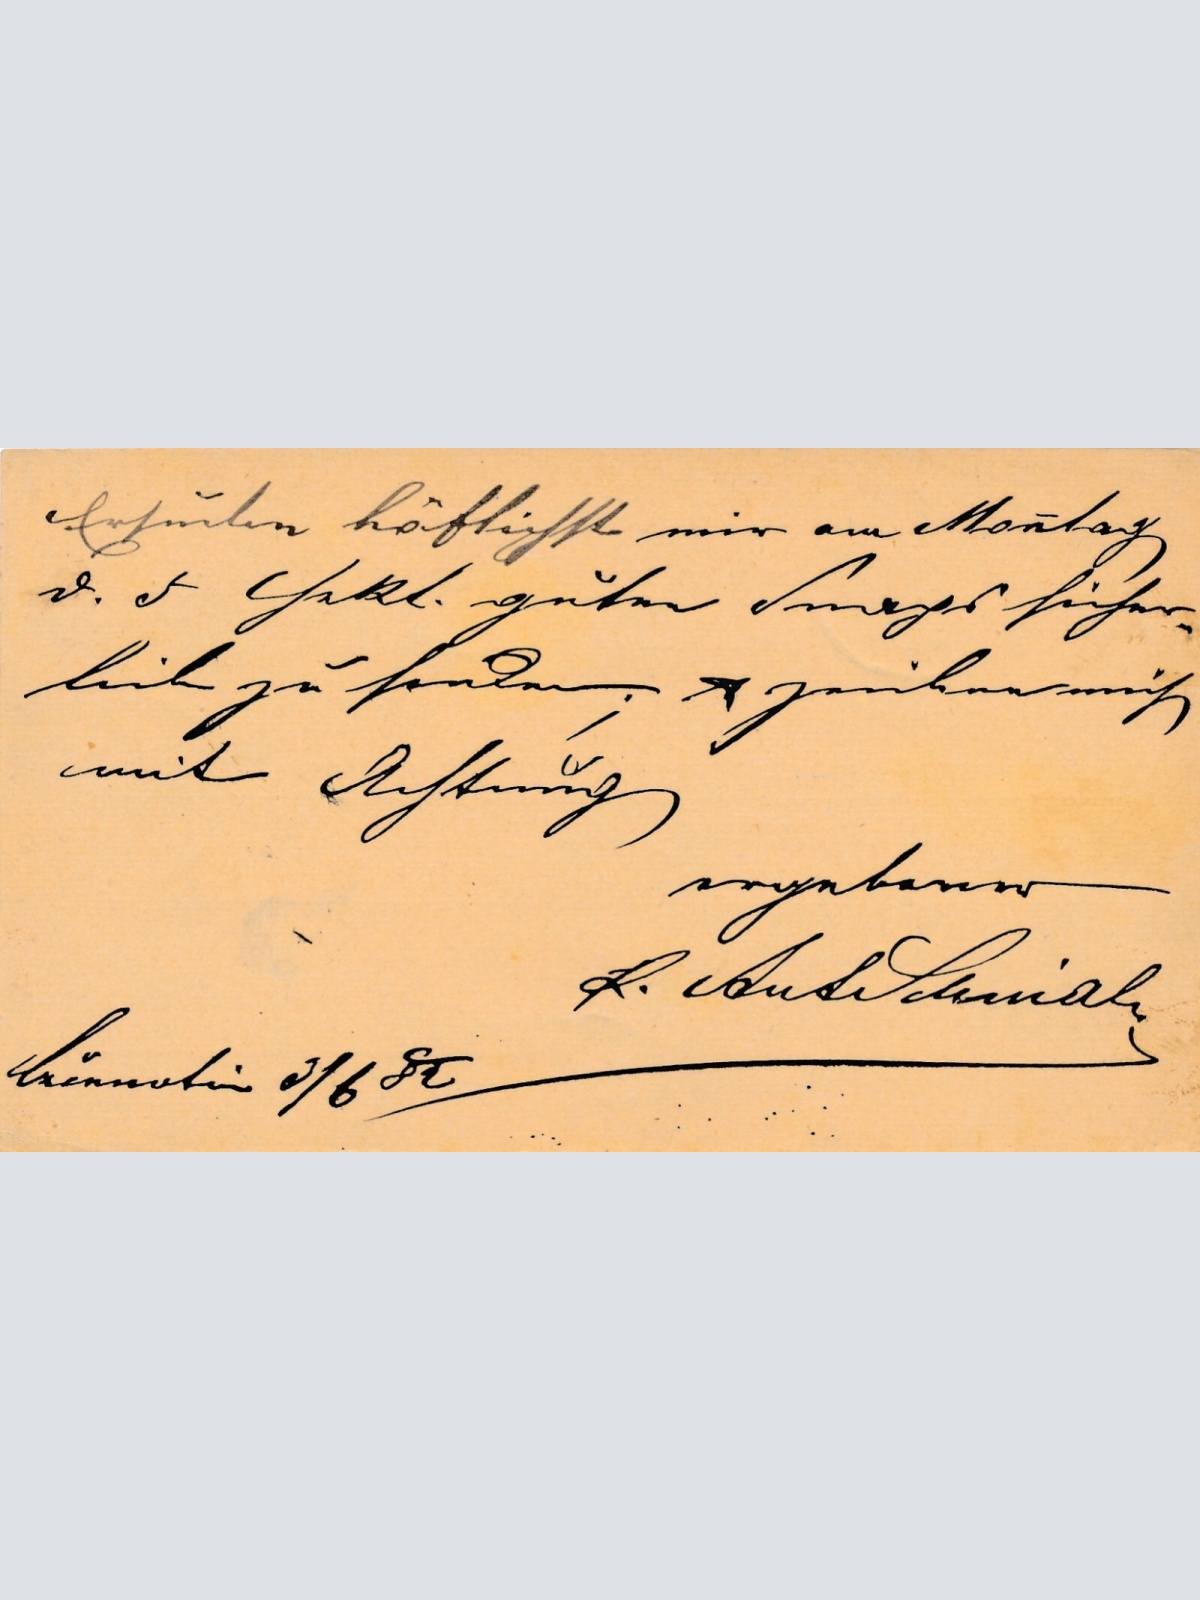 Ersuchen höflichst mir am Montag
d. 5 Hekt. guten Snaps sicher-
lich zu senden, zeichne mich
mit Achtung
ergebener
Ant. Schmidt
3/6 82